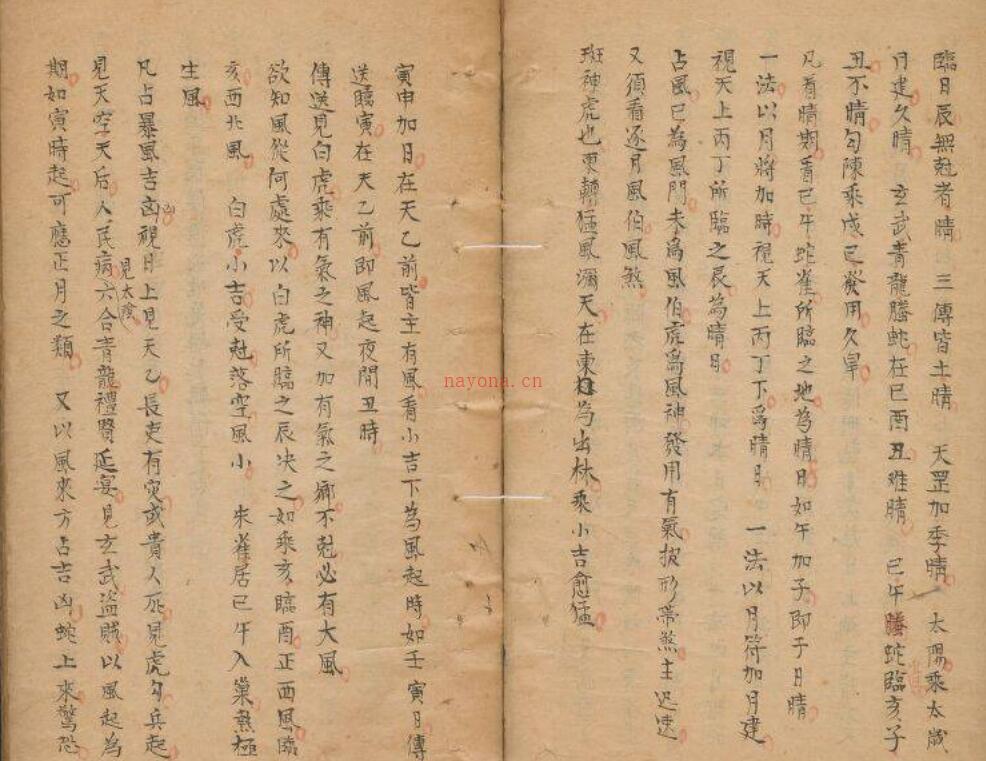 臨日辰無尅者晴　三傳皆土晴　天罡加季晴　太陽乘太歲
月建久晴　玄武青龍螣蛇在巳酉丑难晴　巳午螣蛇臨亥子
丑不晴勾陳乘戊己發用久旱
凡看晴期看巳午蛇雀所臨之地為晴日如午加子即子日晴
一法以月將加時視天上丙丁下為晴日　一法以月符加月建
視天上丙丁所臨之辰為晴日
占風巳為風門未為風伯虎為風神發用有氣披形帶煞主迅速
又須看逐月風伯風煞
班神虎也東轉猛風瀰天在東為出林乘小吉愈猛
寅申加日在天乙前皆主有風看小吉下為風起時如壬寅日傳
送臨寅在天乙前即風起夜間丑時
傳送見白虎乘有氣之神又加有氣之鄉不尅必有大風
欲知風從何處來以白虎所臨之辰决之如乘亥臨酉正西風臨
亥西北風　白虎小吉受尅落空風小　朱雀居巳午入巢熱極
生風
凡占暴風吉凶視日上見天乙長吏有灾或貴人死見虎勾兵起
見天空天后人民病六合青龍禮賢延宴見玄武盗賊以風起為
見太陰
期如寅時起可應正月之類　又以風來方占吉凶蛇上來驚恐
nayona.cn